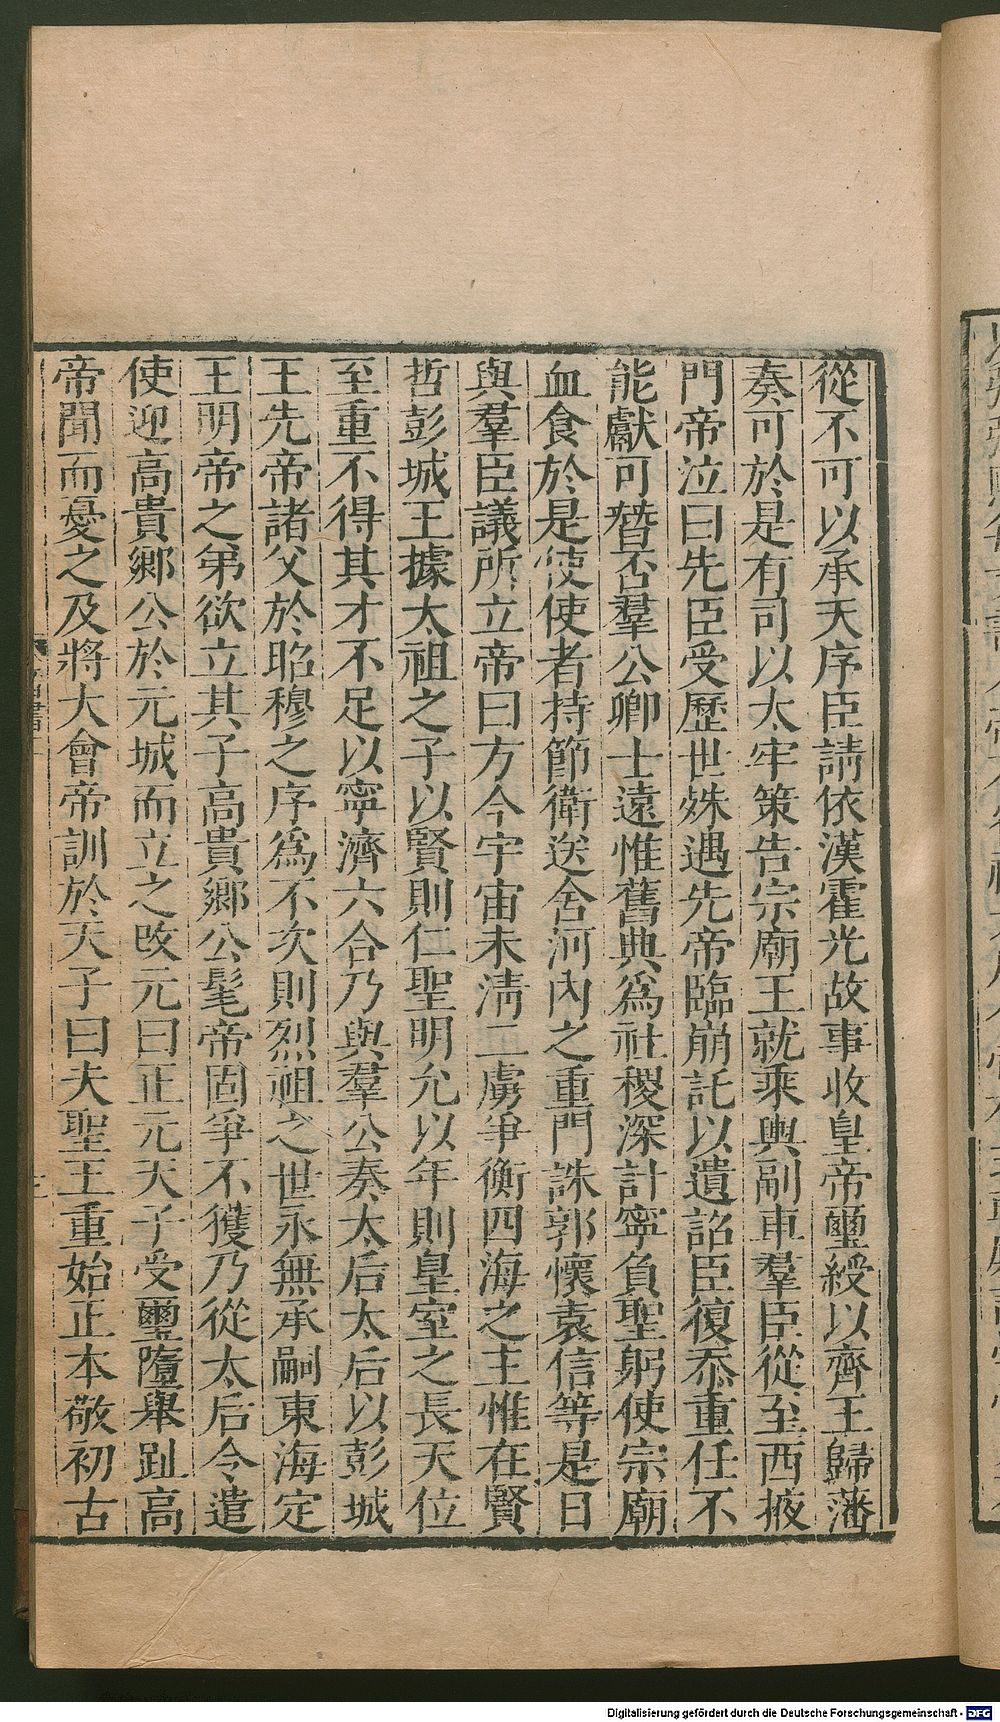 從不可以承天序臣請依漢霍光故事收皇帝璽綬以齊王歸藩
奏可於是有司以太牢策告宗廟王就乘輿副車羣臣從至西掖
門帝泣曰先臣受歷世殊遇先帝臨崩託以遺詔臣復忝重任不
能獻可替否羣公卿士遠惟舊典爲社稷深計寧負聖躬使宗廟
血食於是使使者持節衛送舍河內之重門誅郭懷袁信等是日
與羣臣議所立帝曰方今宇宙未淸二虜爭衡四海之主惟在賢
哲彭城王據太祖之子以賢則仁聖明允以年則皇室之長天位
至重不得其才不足以寧濟六合乃與羣公奏太后太后以彭城
王先帝諸父於昭穆之序爲不次則烈祖之世永無承嗣東海定
王明帝之弟欲立其子高貴鄉公髦帝固爭不獲乃從太后令遣
使迎高貴鄉公於元城而立之改元曰正元天子受璽隨舉趾高
帝聞而憂之及將大會帝訓於天子曰夫聖王重始正本敬初古
Digitalisierung gefördert durch die Deutsche Forschungsgemeinschaft - DFG